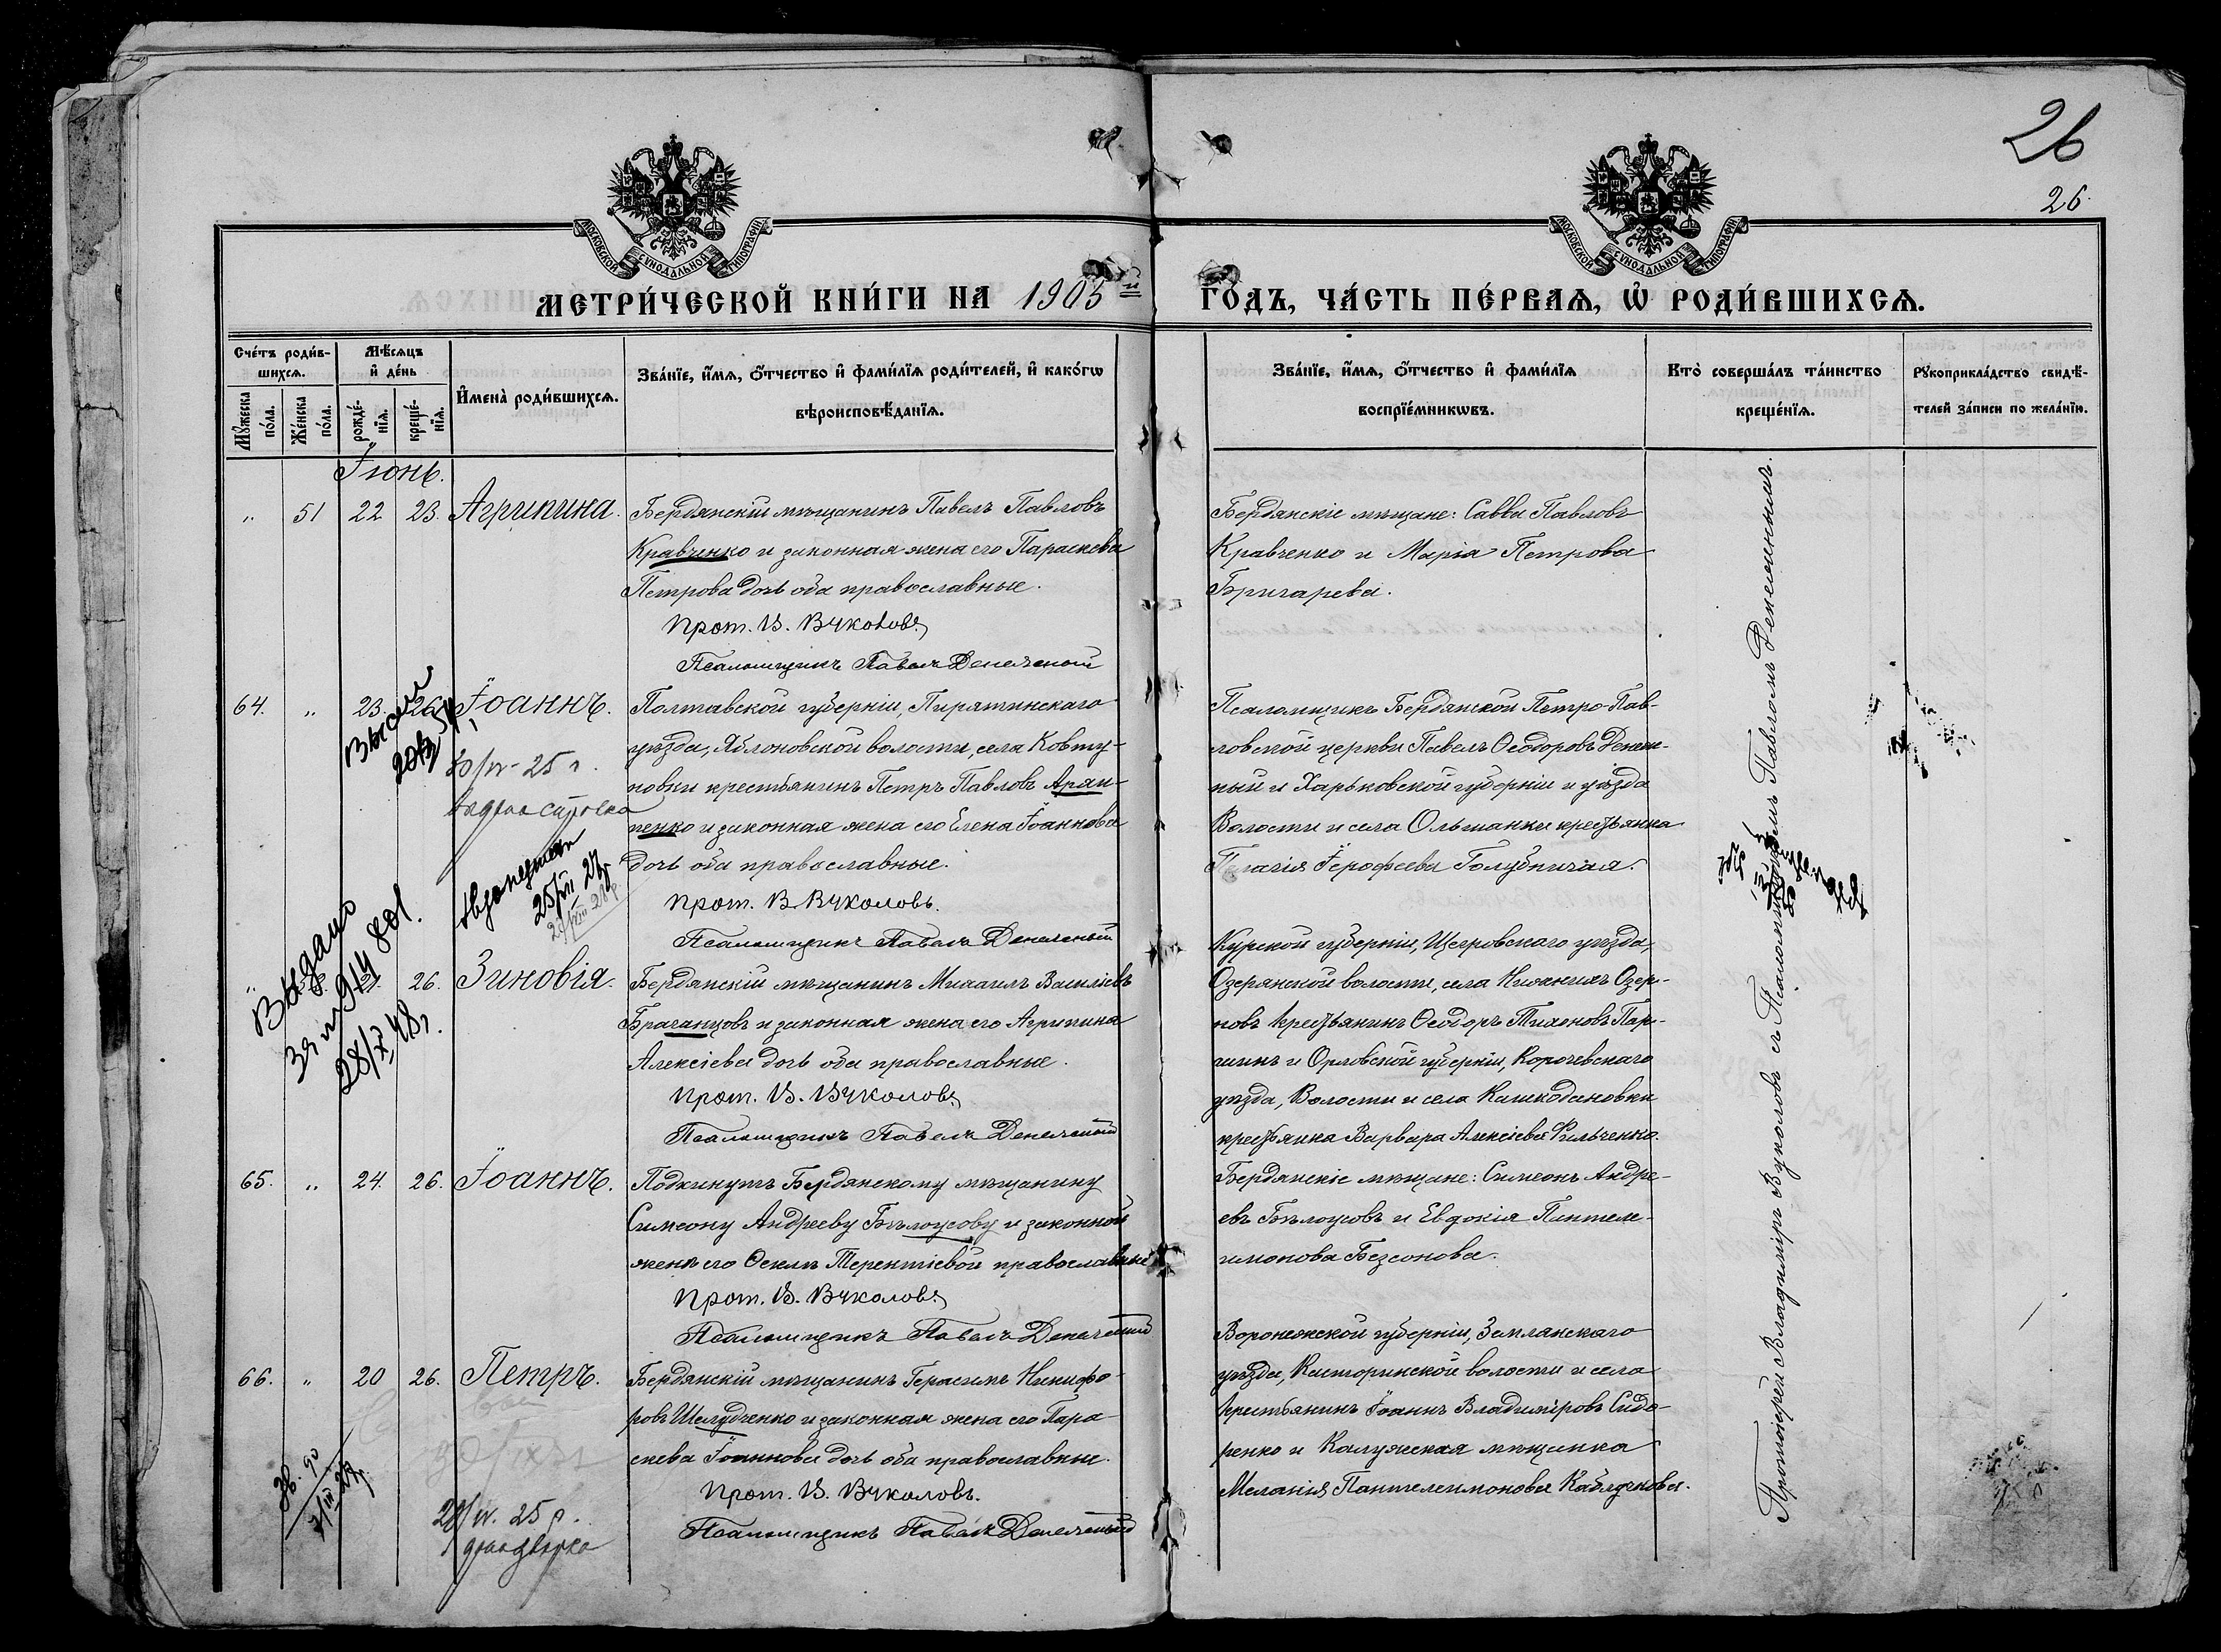 26
26.
МОСКОВСКОЙ СѴНОДАЛЬНОЙ ТИПОГРАФІИ
МОСКОВСКОЙ СѴНОДАЛЬНОЙ ТИПОГРАФІИ
МЕТРИ́ЧЕСКОЙ КНИ́ГИ НА 1905й ГОДЪ, ЧА́СТЬ ПЕ́РВАѦ, Ѽ РОДИ́ВШИХСѦ.
Сче́тъ роди́в-
шихсѧ.
Мꙋжеска по́ла.
Же́нска по́ла.
Мѣ́сѧцъ
и҆ де́нь
рожде́-
нїѧ.
креще́-
нїѧ.
И҆мена̀ роди́вшихсѧ.
Зва́нїе, и҆́мѧ, ѻ҆́тчество и҆ фами́лїѧ роди́телей, и҆ како́гѡ
вѣроисповѣ́данїѧ.
Зва́нїе, и҆́мѧ, ѻ҆́тчество и҆ фами́лїѧ
воспрїе́мникѡвъ.
Кто̀ соверша́лъ та́инство
креще́нїѧ.
Рꙋкоприкла́дство свидѣ́-
телей за́писи по жела́нїю.
Іюнь.
" 51 22 23. Агрипина.
Бердянскій мѣщанинъ Павелъ Павловъ
Кравченко и законная жена его Параскева
Петрова дочь оба православные.
Прот. В. Вуколовъ
Псаломщикъ Павелъ Денежный
Бердянскіе мѣщане: Савва Павловъ
Кравченко и Марія Петрова
Бригарева.
64. " 23. 26. Іоаннъ.
30/IV-25 г.
25/VII 27
Полтавской губерніи, Пирятинскаго
уѣзда, Яблоновской волости, села Ковту-
новки крестьянинъ Петръ Павловъ Арян-
пенко и законная жена его Елена Іоаннова
дочь оба православные.
Прот. В. Вуколовъ.
Псаломщикъ Павелъ Денежный
Псаломщикъ Бердянской Петро-Пав-
ловской церкви Павелъ Ѳеодоровъ Денеж-
ный и Харьковской губерніи и уѣзда
Волости и села Ольшанки крестьянка
Пелагія Іерофеева Голубничая.
Выдано
28/X 48г.
" 26. Зиновія.
Бердянскій мѣщанинъ Михаилъ Василіевъ
Браганцовъ и законная жена его Агрипина
Алексіева дочь оба православные.
Прот. В. Вуколовъ
Псаломщикъ Павелъ Денежный
Курской губерніи, Щегровскаго уѣзда,
Озерянской волости, села Нижнихъ Озер-
новъ крестьянинъ Ѳеодоръ Тихоновъ Пар-
шинъ и Орловской губерніи, Корочевскаго
уѣзда, Волости и села Кашкодановки
крестьянка Варвара Алексіева Фильченко.
65. " 24. 26. Іоаннъ.
Подкинутъ Бердянскому мѣщанину
Симеону Андрееву Бѣлоусову и законной
женѣ его Ѳеклѣ Терентіевой православные
Прот. В. Вуколовъ
Псаломщикъ Павелъ Денежный
Бердянскіе мѣщане: Симеонъ Андре-
евъ Бѣлоусовъ и Евдокія Пантеле-
имонова Безсонова.
66. " 20 26. Петръ.
Бердянскій мѣщанинъ Герасимъ Никифо-
ровъ Шелудченко и законная жена его Пара-
скева Іоаннова дочь оба православные.
Прот. В. Вуколовъ.
Псаломщикъ Павелъ Денежный
Воронежской губерніи, Землянскаго
уѣзда, Касторинской волости и села
крестьянинъ Іоаннъ Владиміровъ Сидо-
ренко и Калужская мѣщанка
Меланія Пантелеимонова Каблукова.
Протоіерей Владиміръ Вуколовъ съ Псаломщикомъ Павломъ Денежнымъ.